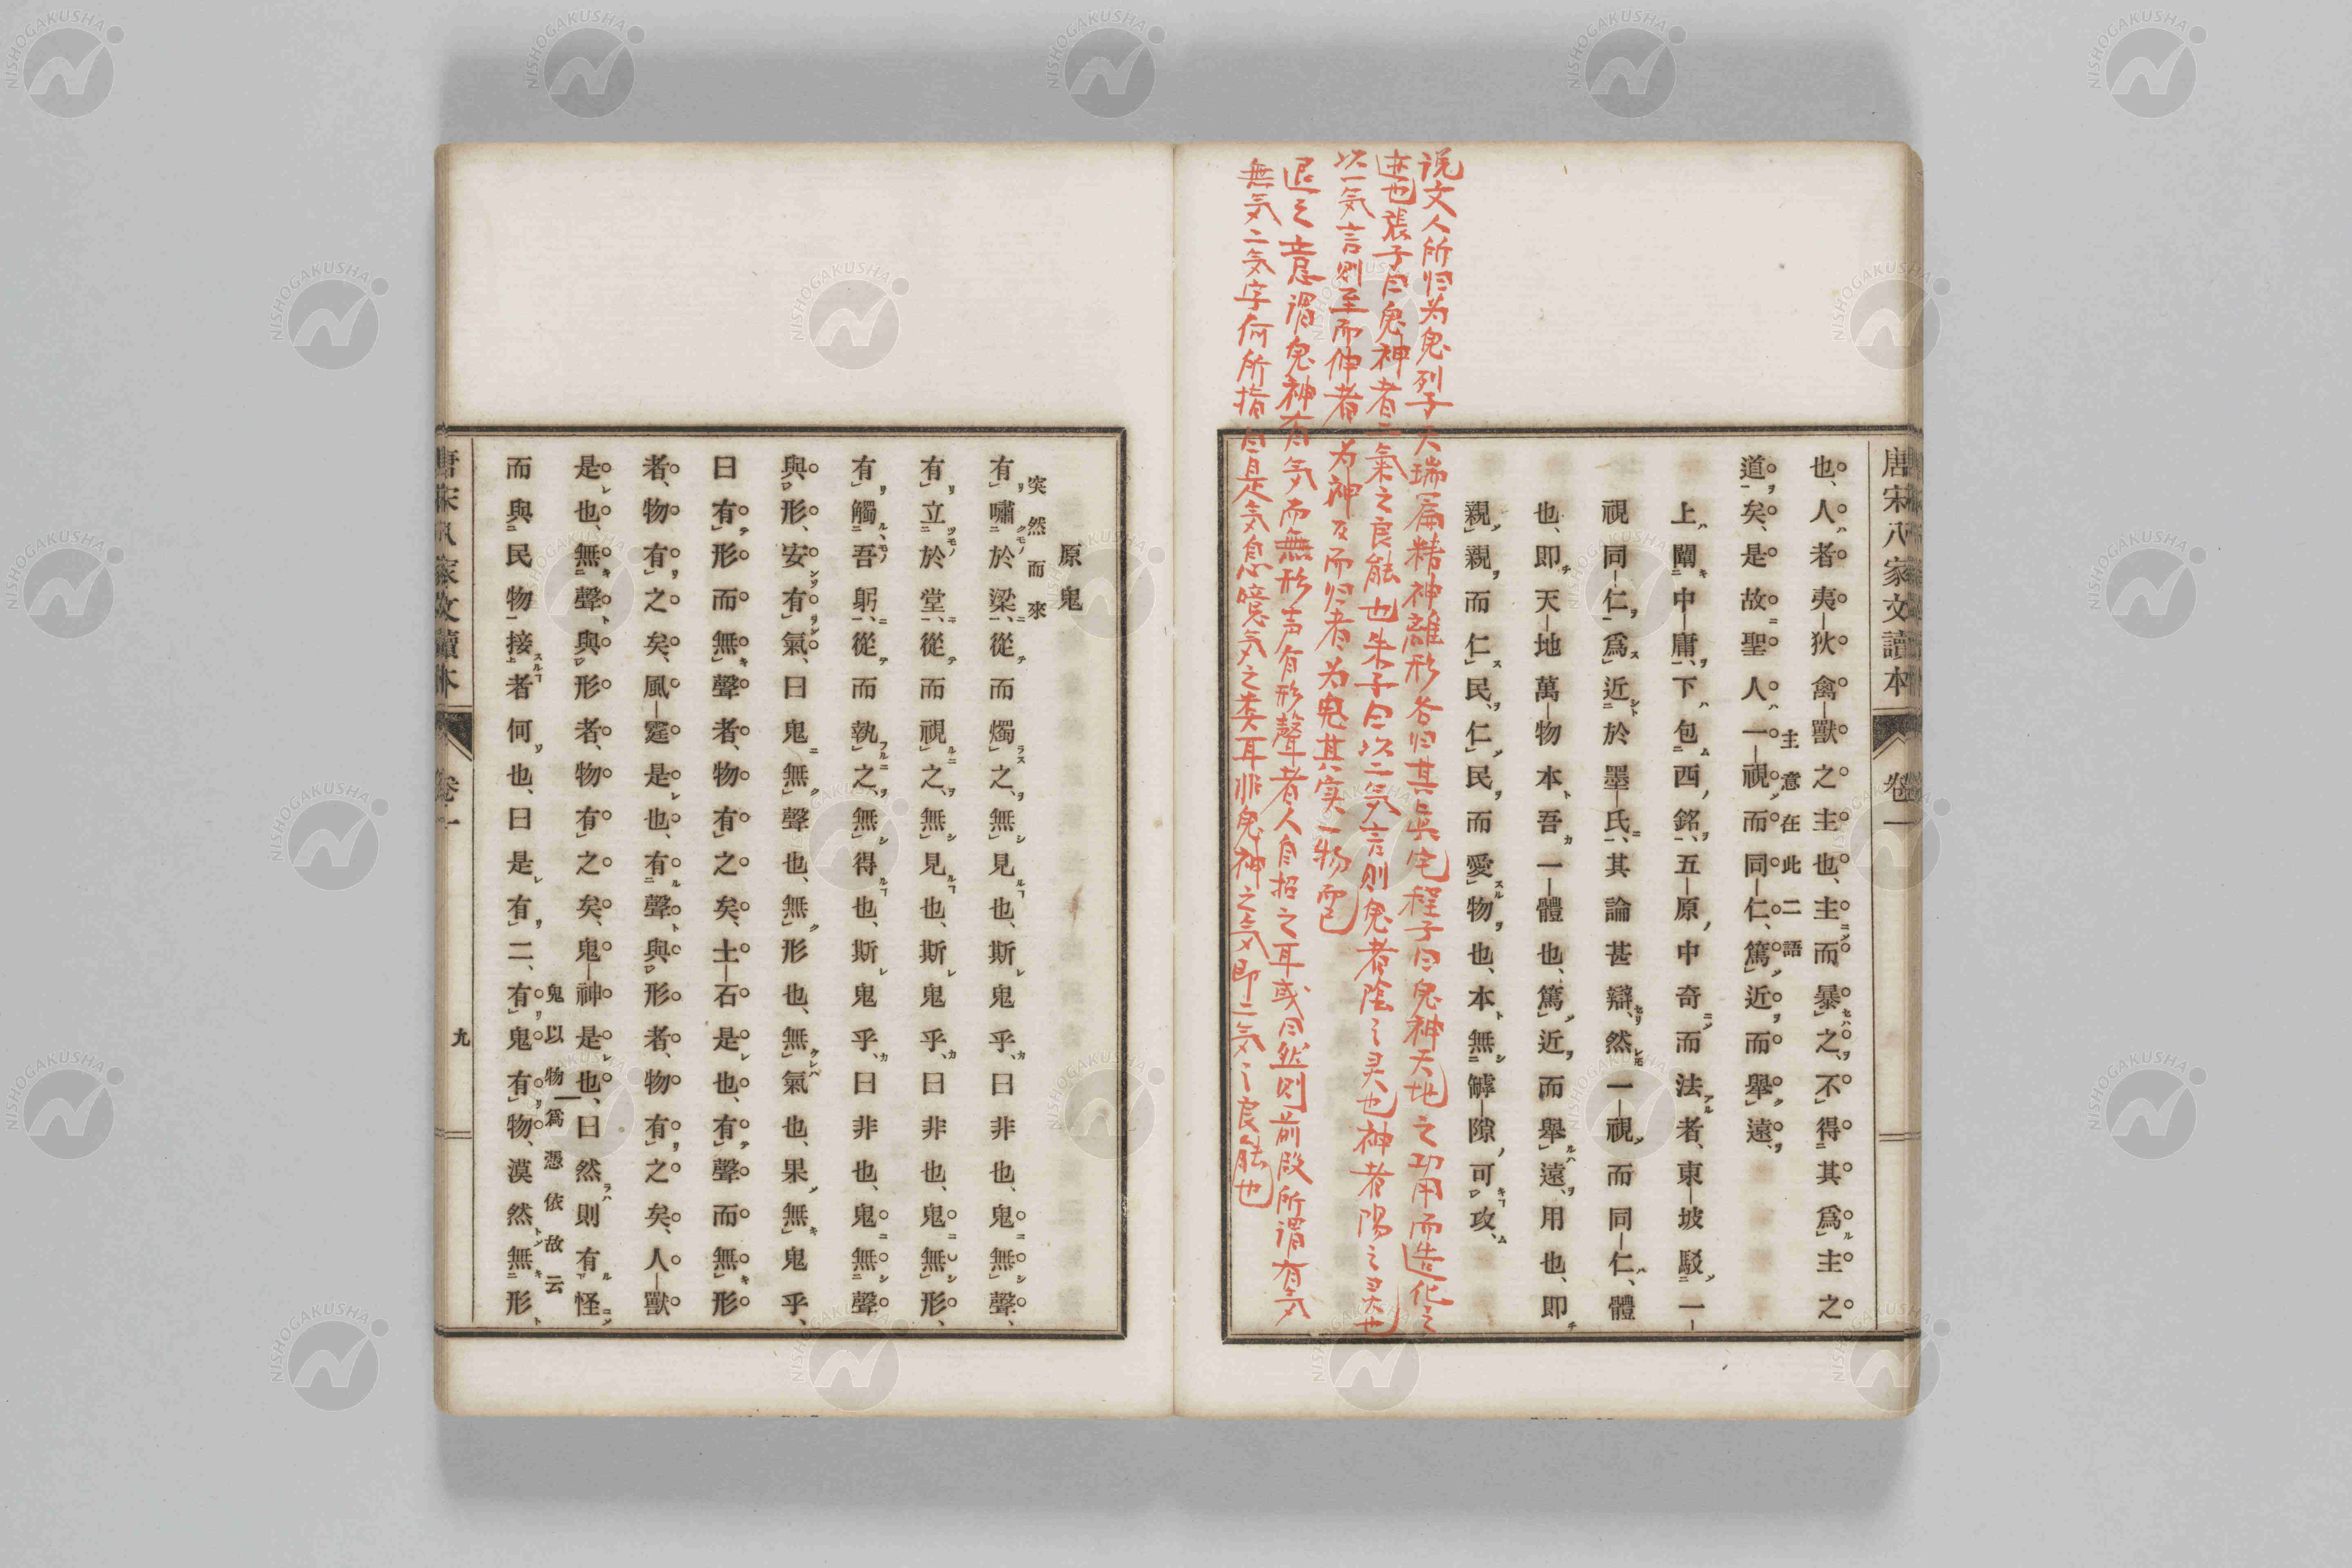 唐宋八家文讀本 卷一
也、人者夷狄禽獸之主也、主而暴之、不得其爲主之
道矣、是故聖人一視而同仁、篤近而舉遠、
主意在此二語
上闖中庸、下包西銘、五原中奇而法者、東坡駁一
視同仁爲近於墨氏、其論甚辯、然一視而同仁、體
也、即天地萬物本吾一體也、篤近而舉遠、用也、即
親親而仁民、仁民而愛物也、本無罅隙可攻、
说文人所归为鬼列子天瑞篇精神離形各归其真宅程子曰鬼神天地之功用而造化之
迹也張子曰鬼神者二氣之良能也朱子曰以二気言則鬼者陰之灵也神者陽之灵也
以一気言則至而伸者为神反而归者为鬼其实一物而已
退之意謂鬼神有気而無形声有形聲者人自招之耳或曰然則前段所謂有気
無気二気字何所指曰是気息噫気之类耳非鬼神之気即二気之良能也
原鬼
突然而來
有嘯於梁、從而燭之、無見也、斯鬼乎、曰非也、鬼無聲、
有立於堂、從而視之、無見也、斯鬼乎、曰非也、鬼無形、
有觸吾躬、從而執之、無得也、斯鬼乎、曰非也、鬼無聲
與形、安有氣、曰鬼無聲也、無形也、無氣也、果無鬼乎、
曰有形而無聲者、物有之矣、土石是也、有聲而無形
者、物有之矣、風霆是也、有聲與形者、物有之矣、人獸
是也、無聲與形者、物有之矣、鬼神是也、曰然則有怪
鬼以物爲憑依故云
而與民物接者何也、曰是有二、有鬼有物、漠然無形
唐宋八家文讀本 卷一 九